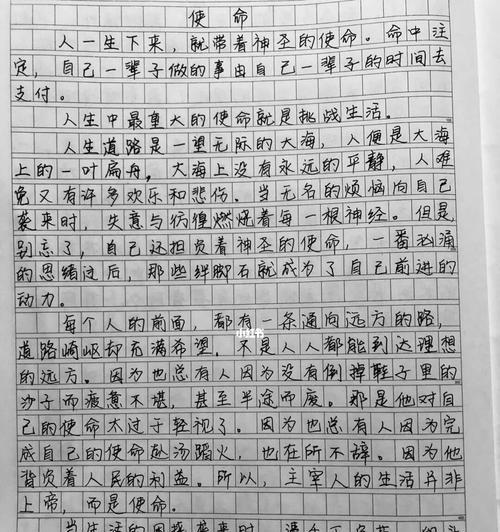 使命
人一生下来，就带着神圣的使命。命中注
定，自己一辈子做的事由自己一辈子的时间去
支付。
人生中最重大的使命就是挑战生活。
人生道路是一望无际的大海，人便是大海
上的一叶扁舟。大海上没有永远的平静，人难
免又有许多欢乐和悲伤。当无名的烦恼向自己
袭来时，失意与彷徨燃烧着每一根神经。但是，
别忘了，自己还担负着神圣的使命，一番汹涌
的思绪过后，那些绊脚石就成为了自己前进的
动力。
每个人的前面，都有一条通向远方的路，
道路崎岖却充满希望。不是人人都能到达理想
的远方。因为也总有人因为没有倒掉鞋子里的
沙子而疲惫不堪，甚至半途而废。那是他对自
己的使命太过于轻视了。因为也总有人因为完
成自己的使命赴汤蹈火，也在所不辞。因为他
背负着人民的利益。所以，主宰人的生活并非
上帝，而是使命。
当生活的困扰袭来时，